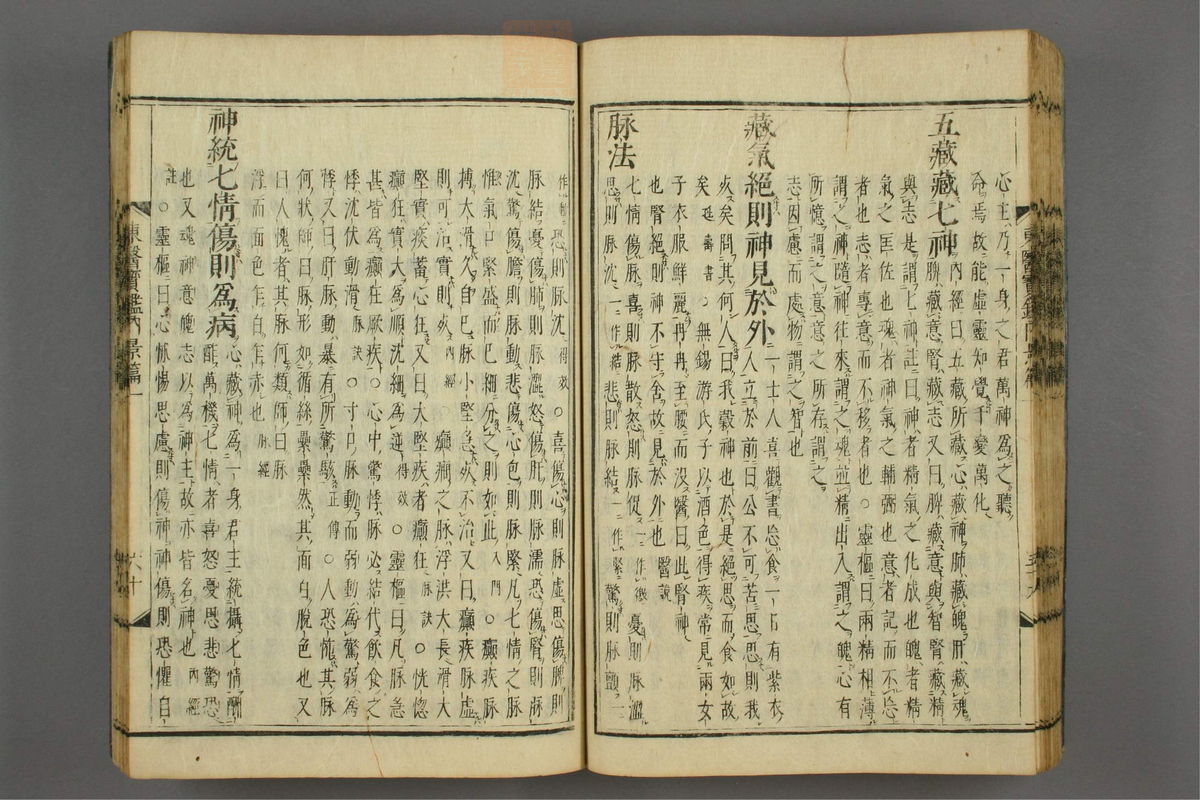 心主乃一身之君萬神爲之聽
命焉故能虛靈知覺千變萬化
五藏藏七神 內經曰五藏所藏心藏神肺藏魄肝藏魂
脾藏意腎藏志又曰脾藏意與智腎藏精
與志是謂七神註曰神者精氣之化成也魄者精
氣之匡佐也魂者神氣之輔弼也意者記而不忘
者也志者專意而不移者也○靈樞曰兩精相薄
謂之神隨神往來謂之魂並精出入謂之魄心有
所憶謂之意意之所存謂之
志因慮而處物謂之智也
藏氣絕則神見於外 一士人喜觀書忘食一日有紫衣
人立於前曰公不可苦思思則我
死矣問其何人曰我穀神也於是絕思而食如故
矣延壽書○無錫游氏子以酒色得疾常見兩女
子衣服鮮麗冉冉至腰而沒醫曰此腎神
也腎絕則神不守舍故見於外也醫說
脉法 七情傷脉喜則脉散怒則脉促一作激憂則脉澁一
思則脉沈一作結悲則脉結一作緊驚則脉顫一
恐則脉沈得效○喜傷心則脉虛思傷脾則
脉結憂傷肺則脉澁怒傷肝則脉濡恐傷腎則脉
沈驚傷膽則脉動悲傷心色則脉緊凡七情之脉
惟氣口緊盛而已細分之則如此入門○癲疾脉
搏大滑久自已脉小堅急死不治又曰癲疾脉虛
則可治實則死內經○癲癇之脉浮洪大長滑大
堅實痰蓄心狂又曰大堅疾者癲狂脉訣○恍惚
癲狂實大爲順沈細爲逆得效○靈樞曰凡脉急
甚皆爲癲狂厥疾○心中驚悸脉必結代飲食之
悸沈伏動滑脉訣○寸口脉動而弱動爲驚弱爲
悸又曰肝脉動暴有所驚駭正傳○人恐怖其脉
何狀師曰脉形如循絲纍纍然其面白脫色也又
曰人愧者其脉何類師曰脉
浮而面色乍白乍赤也脉經
神統七情傷則爲病 心藏神爲一身君主統攝七情酬
酢萬機七情者喜怒憂思悲驚恐
也又魂神意魄志以爲神主故亦皆名神也內經
註○靈樞曰心怵惕思慮則傷神神傷則恐懼自
東醫寶鑑內景篇一
六十